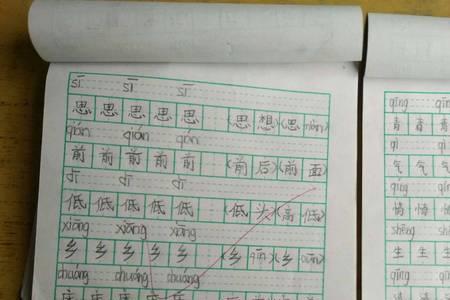 sī sī sī
思 思 思 思 思 (思 想)(思 niàn)
qián qián qián
前 前 前 前 前 (前 后)(前 面)
dī dī dī
低 低 低 低 低 (低 头)(高 低)
xiāng xiāng xiāng
乡 乡 乡 乡 乡 (乡 乡
chuáng chuáng chuáng
床 床 床 床 床
qīng qīng
青 青 青
qì qì
气 气 气
qíng qíng
情 情 情
shēng shēng
生 生 生
qīng qīng